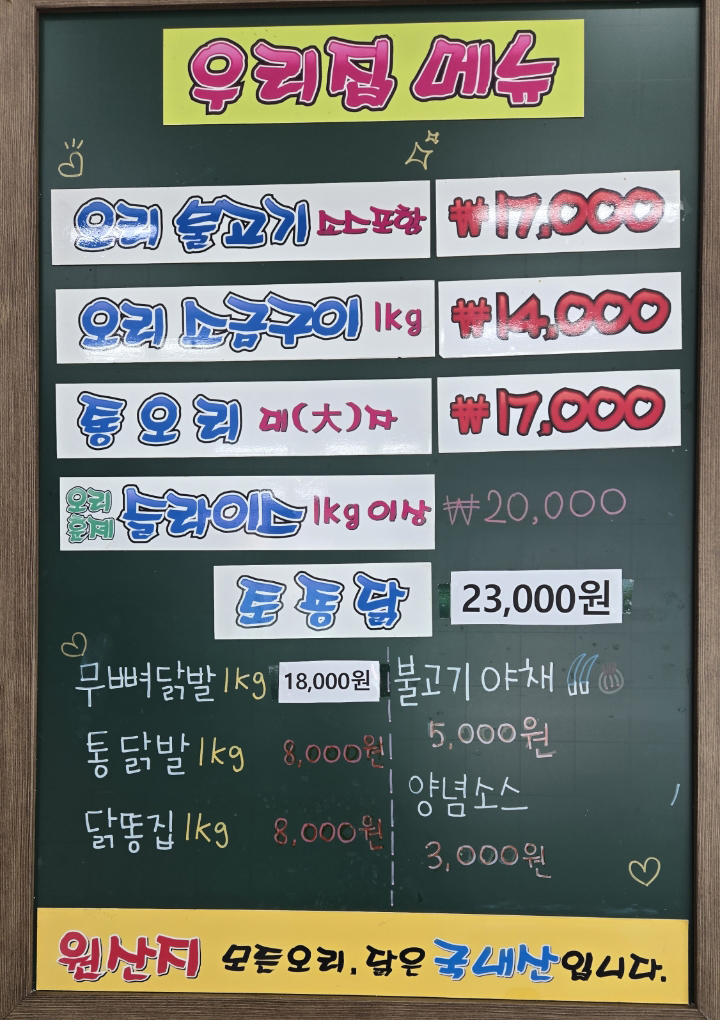 우리집 메뉴
오리 불고기 소스포함 ₩17,000
오리 소금구이 1kg ₩14,000
통 오 리 대(大)자 ₩17,000
오리훈제 슬라이스 1kg 이상 ₩20,000
토 종 닭 23,000원
무뼈닭발 1kg 18,000원
통 닭발 1kg 8,000원
닭똥집 1kg 8,000원
불고기 야채
5,000원
양념소스
3,000원
원산지 모든오리, 닭은 국내산입니다.